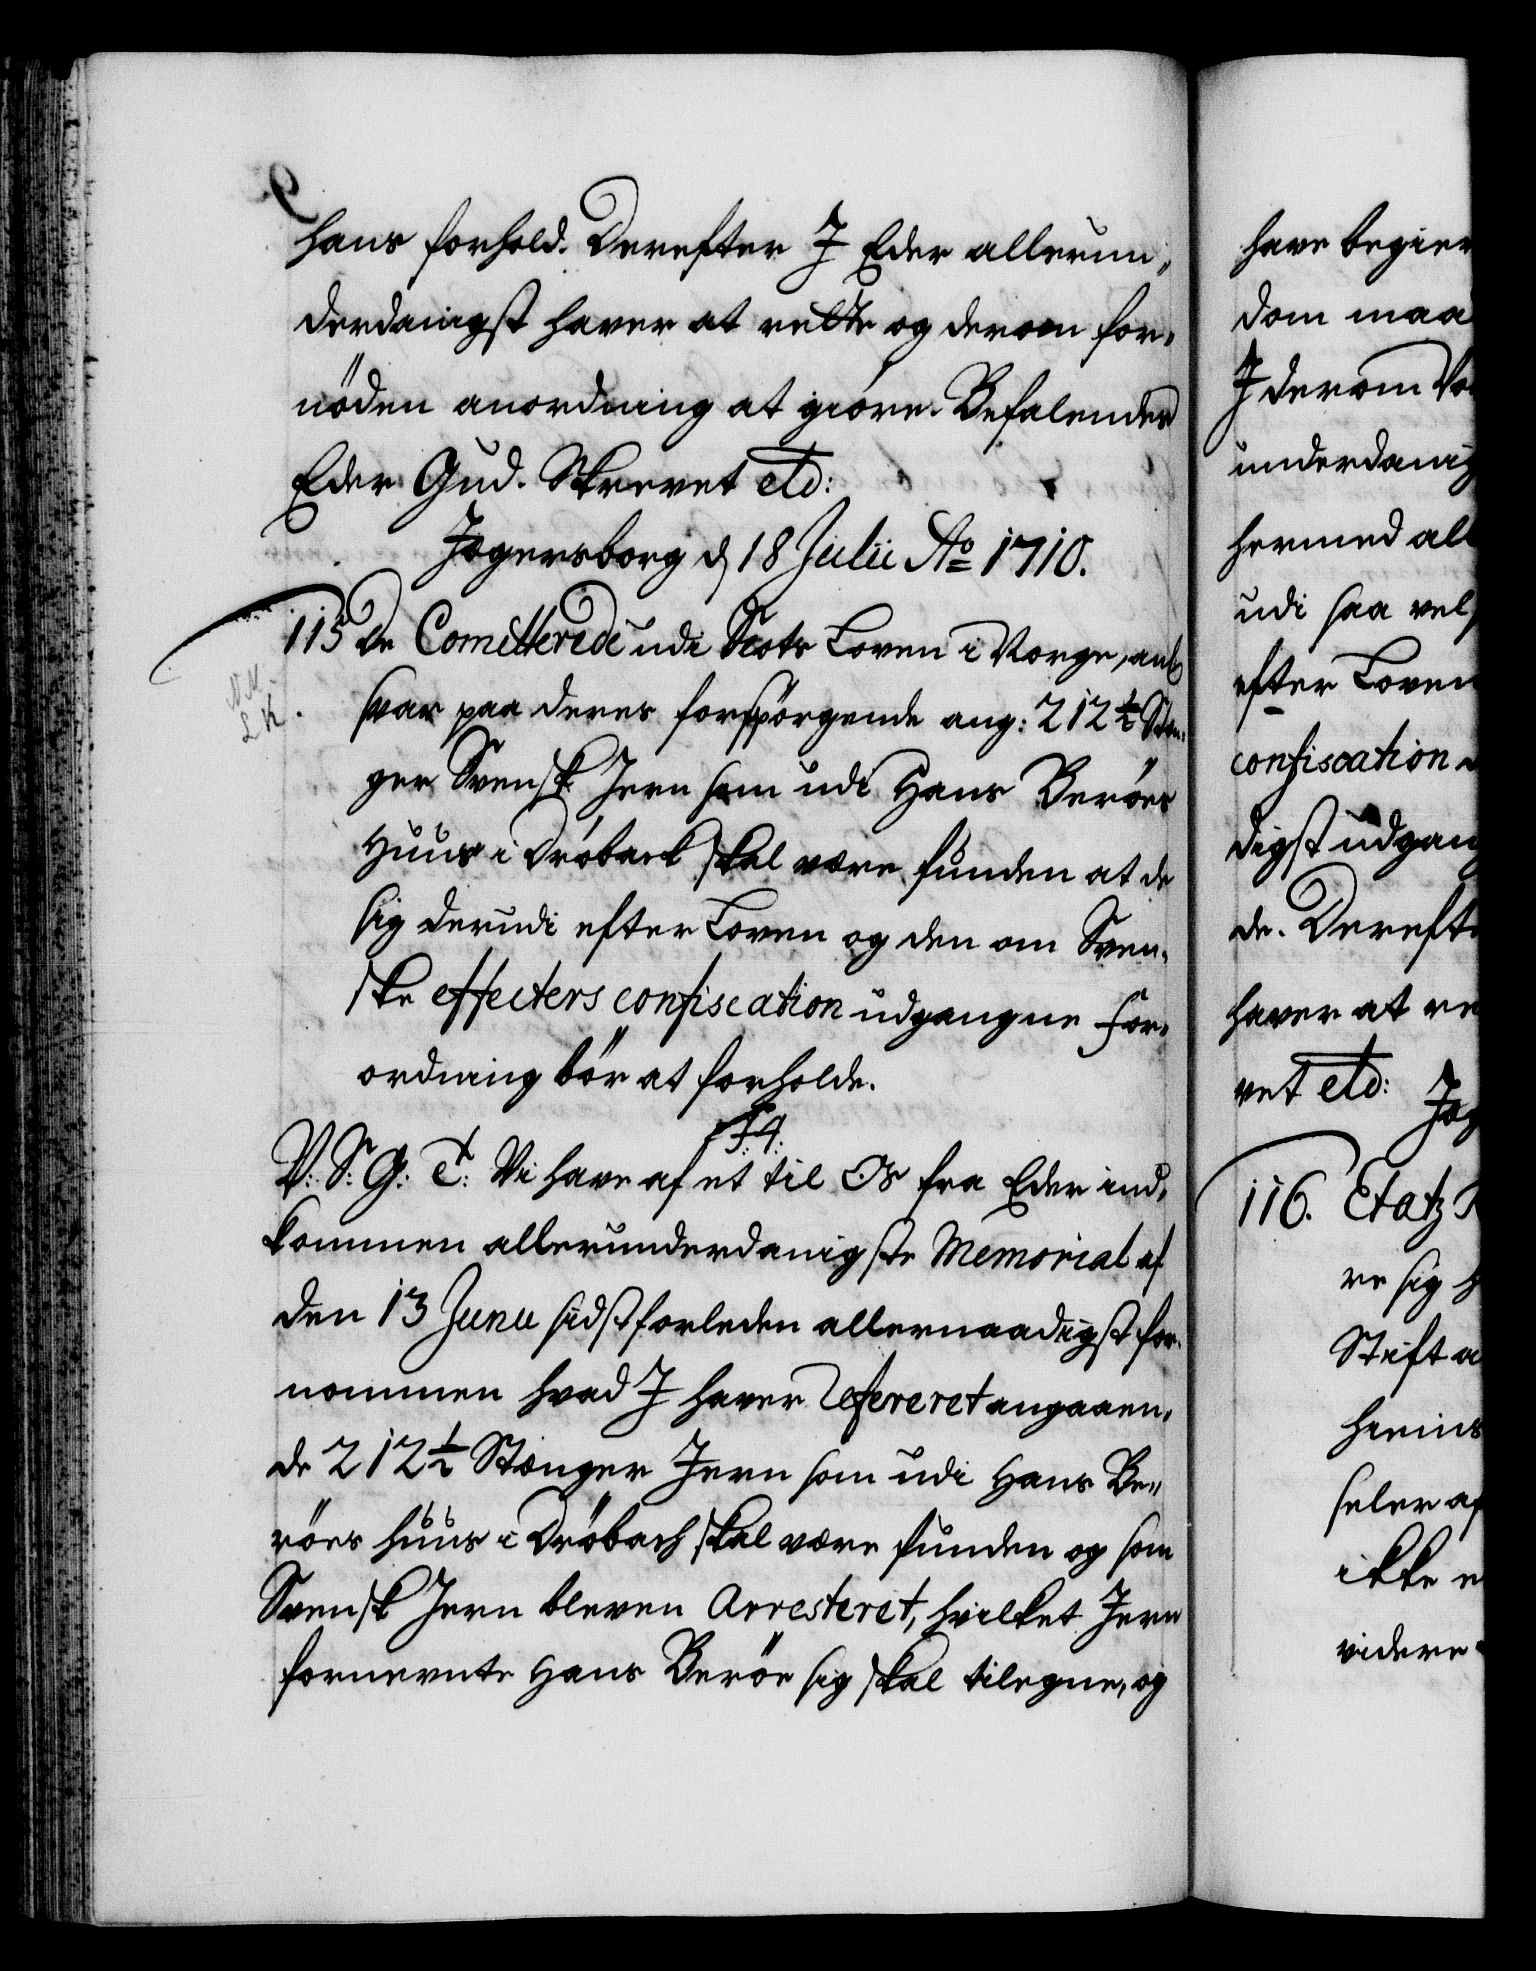 hans forhold. Derefter I Eder allerun-
derdanigst haver at rette og derom for-
nöden anordning at giöre. Befalendes
Eder Gud. Skrevet etc:
Jægersborg d. 18 Julii Ao 1710.
115 De Comitterede udi Slots Loven i Norge, anl.
svar paa deres forspörgende ang: 212½ Stæn-
ger Svensk Jern som udi Hans Beröes
Huus i Dröback skal være funden at de
sig derudi efter Loven og den om Sven-
ske effecters confiscation udgangne For-
ordning bör at forholde.
F. 4.
V: S: G: T: Vi have af et til Os fra Eder ind-
kommen allerunderdanigste Memorial af
den 13 Junii sidstforleden allernaadigst for-
nommen hvad I haver refereret angaaen-
de 212½ Stænger Jern som udi Hans Be-
röes huus i Dröbach skal være funden og som
Svensk Jern bleven Arresteret, hvilket Jern
fornevnte Hans Beröe sig skal tilegne, og
have begier
dom maa
I derom Vo
underdanig
hermed all
udi saa vel
efter Loven
confiscation
digst udgang
de. Derefte
haver at re
vet etc:
Jæg
116. Etatz R
re sig h
Stift a
hiems
seler af
ikke e
videre